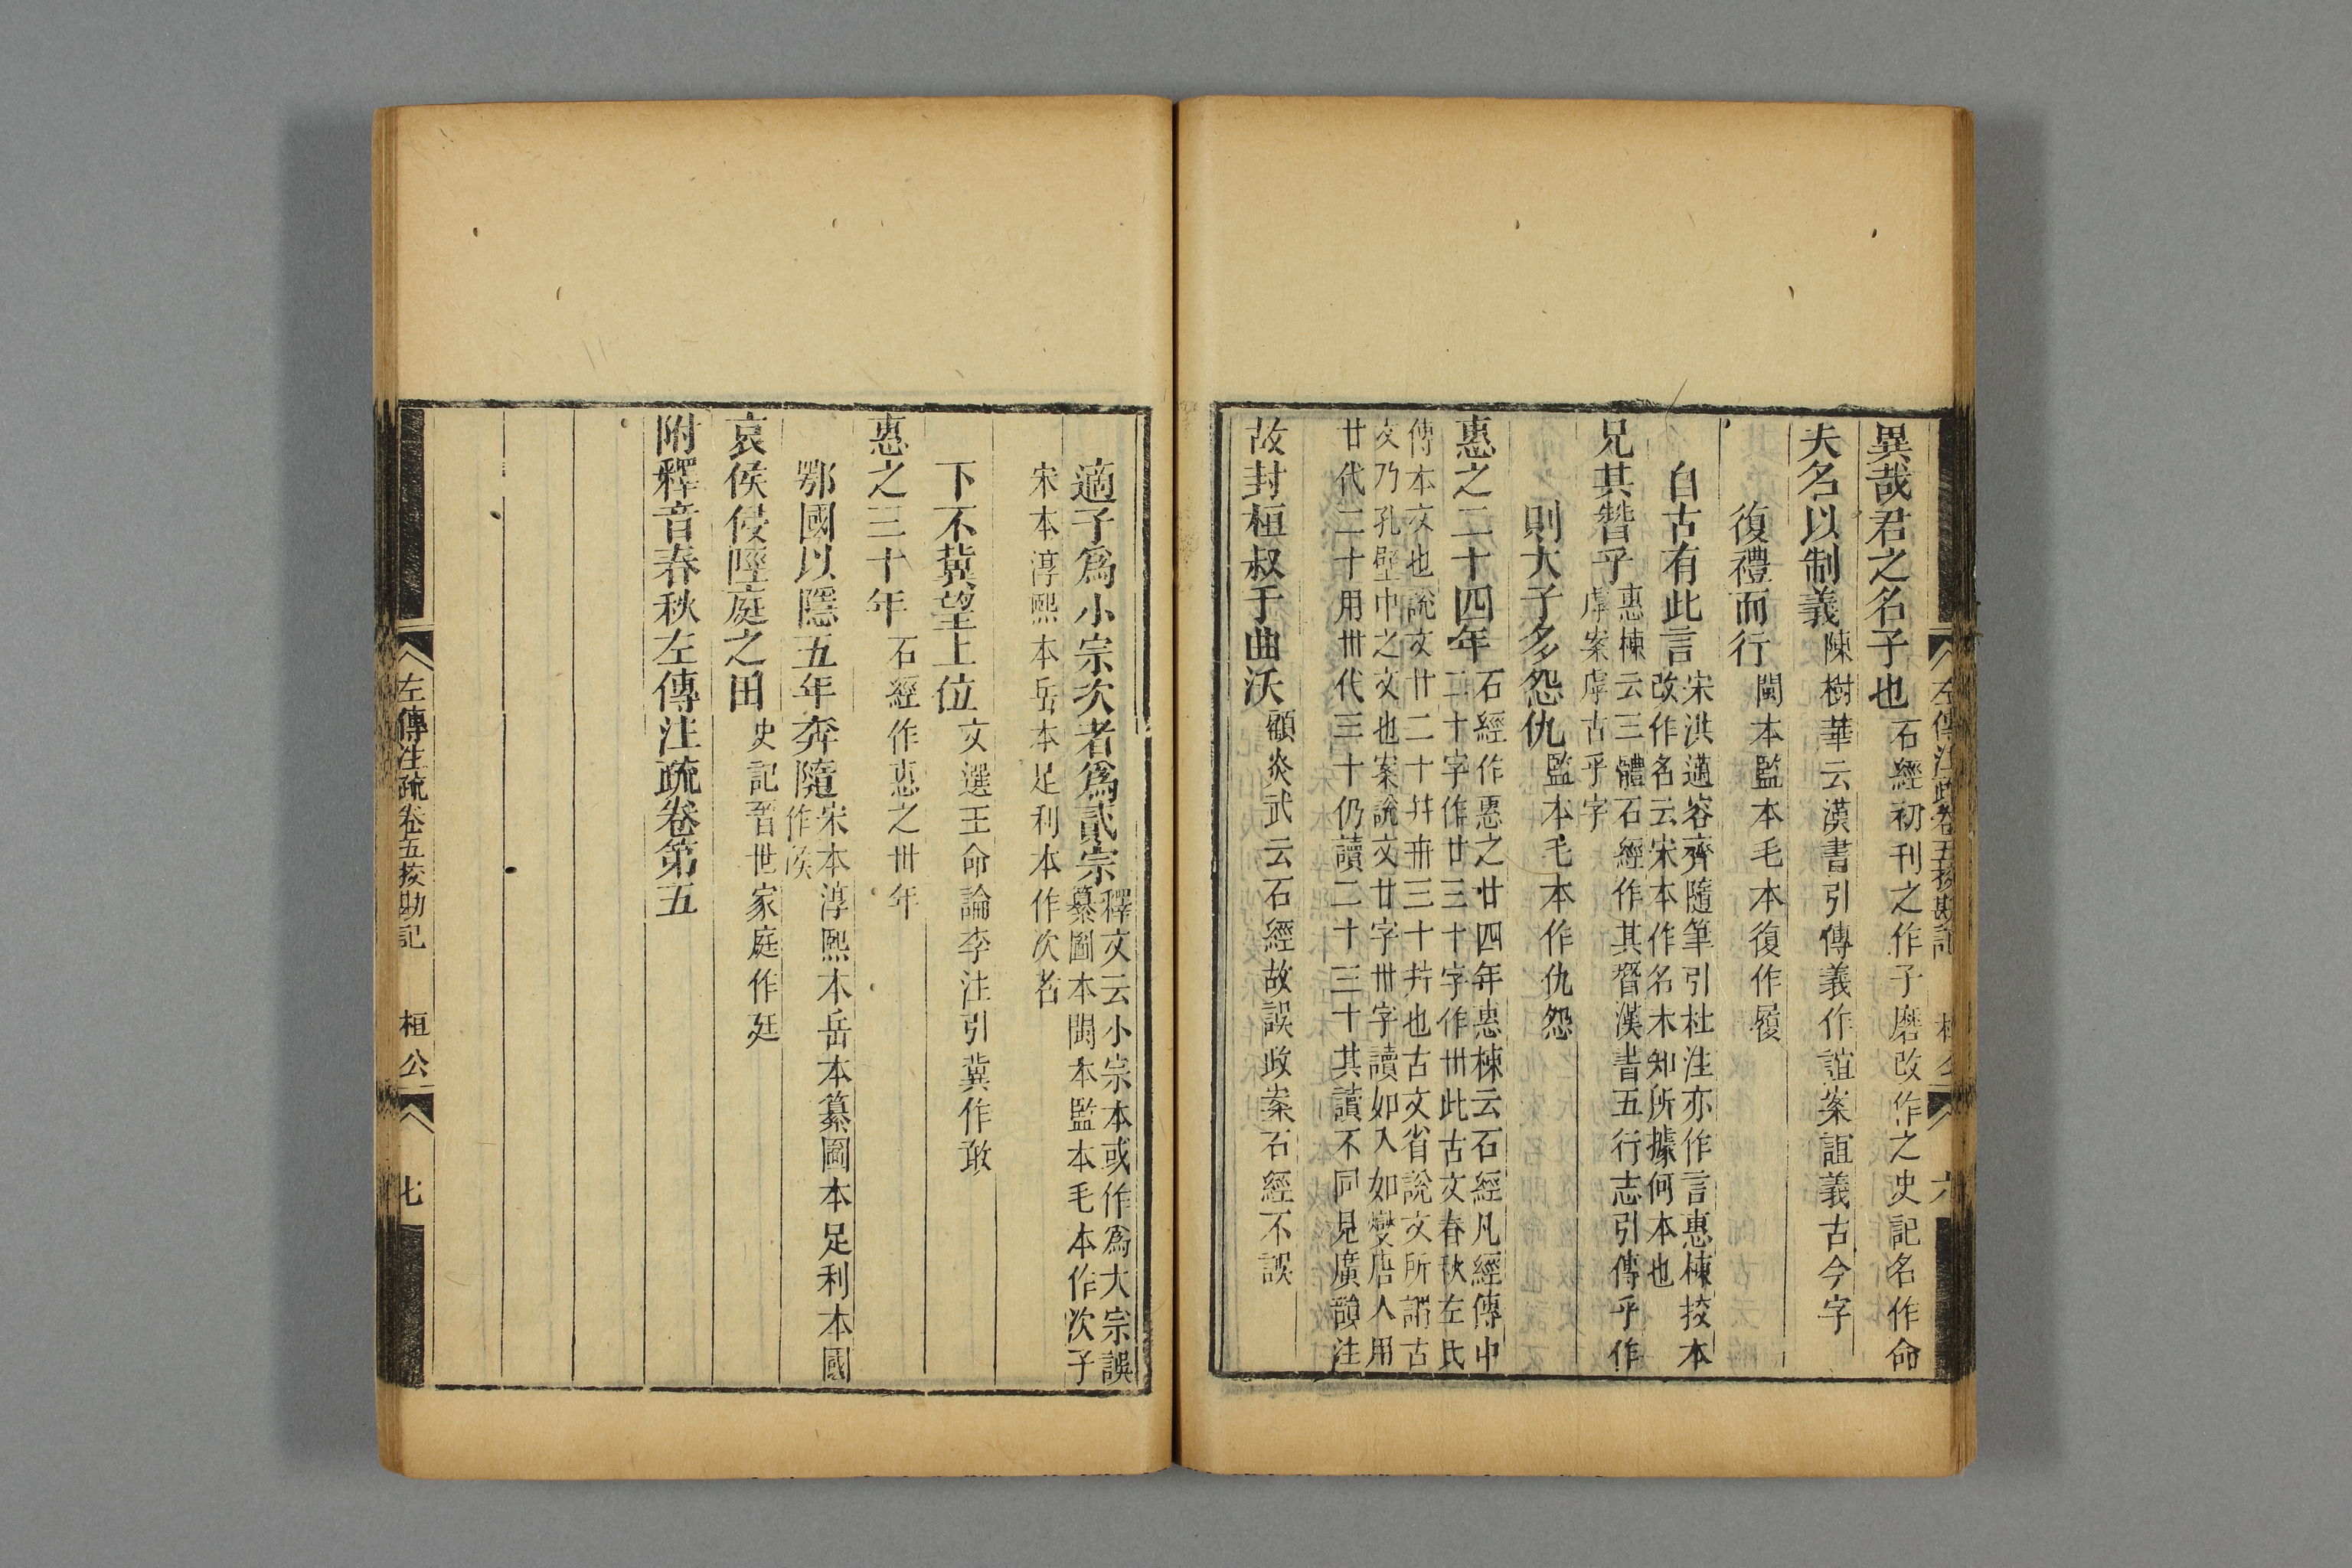 異哉君之名子也石經初刊之作子磨改作之史記名作命
夫名以制義陳樹華云漢書引傳義作誼案誼義古今字
復禮而行閩本監本毛本復作履
自古有此言宋洪邁容齊隨筆引杜注亦作言惠棟挍本
改作名云宋本作名未知所據何本也
兄其替乎惠棟云三體石經作其朁漢書五行志引傳乎作
虖案虖古乎字
則大子多怨仇監本毛本作仇怨
惠之二十四年石經作惠之廿四年惠棟云石經凡經傳中
二十字作廿三十字作卅此古文春秋左氏
傳本文也說文廿二十幷卅三十幷也古文省說文所謂古
文乃孔壁中之文也案說文廿字卅字讀如入如變唐人用
廿代二十用卅代三十仍讀二十三十其讀不同見廣韻注
故封桓叔于曲沃顧炎武云石經故誤政案石經不誤
左傳注疏卷五挍勘記 桓公 六
適子爲小宗次者爲貳宗釋文云小宗本或作爲大宗誤
纂圖本閩本監本毛本作次子
宋本淳熙本岳本足利本作次者
下不冀望上位文選王命論李注引冀作敢
惠之三十年石經作惠之卅年
鄂國以隱五年奔隨宋本淳熙本岳本纂圖本足利本國
作侯
哀侯侵陘庭之田史記晉世家庭作廷
附釋音春秋左傳注疏卷第五
左傳注疏卷五挍勘記 桓公 七